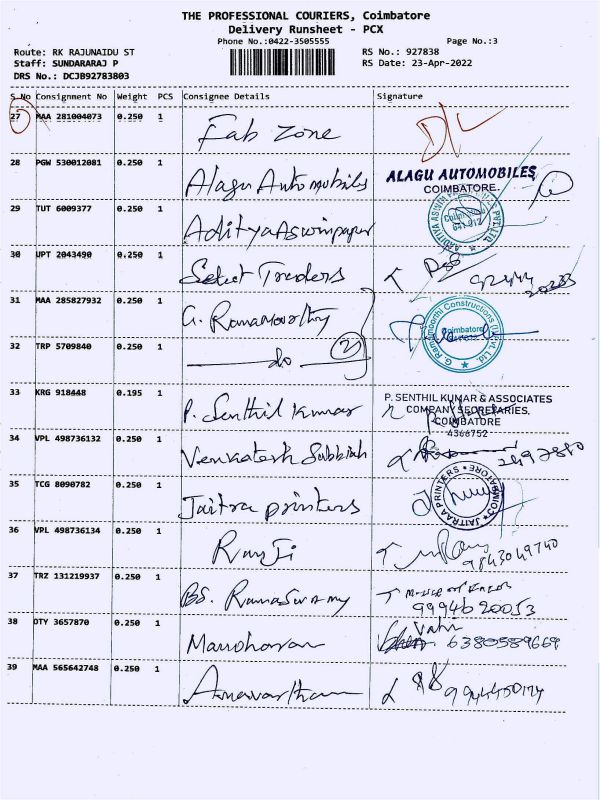 THE PROFESSIONAL COURIERS, Coimbatore
Delivery Runsheet - PCX
Phone No.:0422-3505555 Page No.:3
Route: RK RAJUNAIDU ST RS No.: 927838
Staff: SUNDARARAJ P RS Date: 23-Apr-2022
DRS No.: DCJB92783803
S No Consignment No Weight PCS Consignee Details Signature
27 MAA 281004073 0.250 1 Fab Zone D/L
28 PGW 530012081 0.250 1 Alagu Automobiles ALAGU AUTOMOBILES
COIMBATORE.
29 TUT 6009377 0.250 1
30 UPT 2043490 0.250 1 Select Traders
31 MAA 285827932 0.250 1 G. Ramamoorthy G. Ramamoorthi Constructions (I) Pvt. Ltd.
Coimbatore
32 TRP 5709840 0.250 1 do 2
33 KRG 918448 0.195 1 P. Senthil Kumar P. SENTHIL KUMAR & ASSOCIATES
COMPANY SECRETARIES.
COIMBATORE
4366752
34 VPL 498736132 0.250 1 Venkatesh Subbiah
35 TCG 8090782 0.250 1 Jaitra printers JAITRAA PRINTERS COIMBATORE
36 VPL 498736134 0.250 1 RamJi 9843049740
37 TRZ 131219937 0.250 1 BS. Ramaswamy
9994620053
38 OTY 3657870 0.250 1 Manoharan 6380589669
39 MAA 565642748 0.250 1